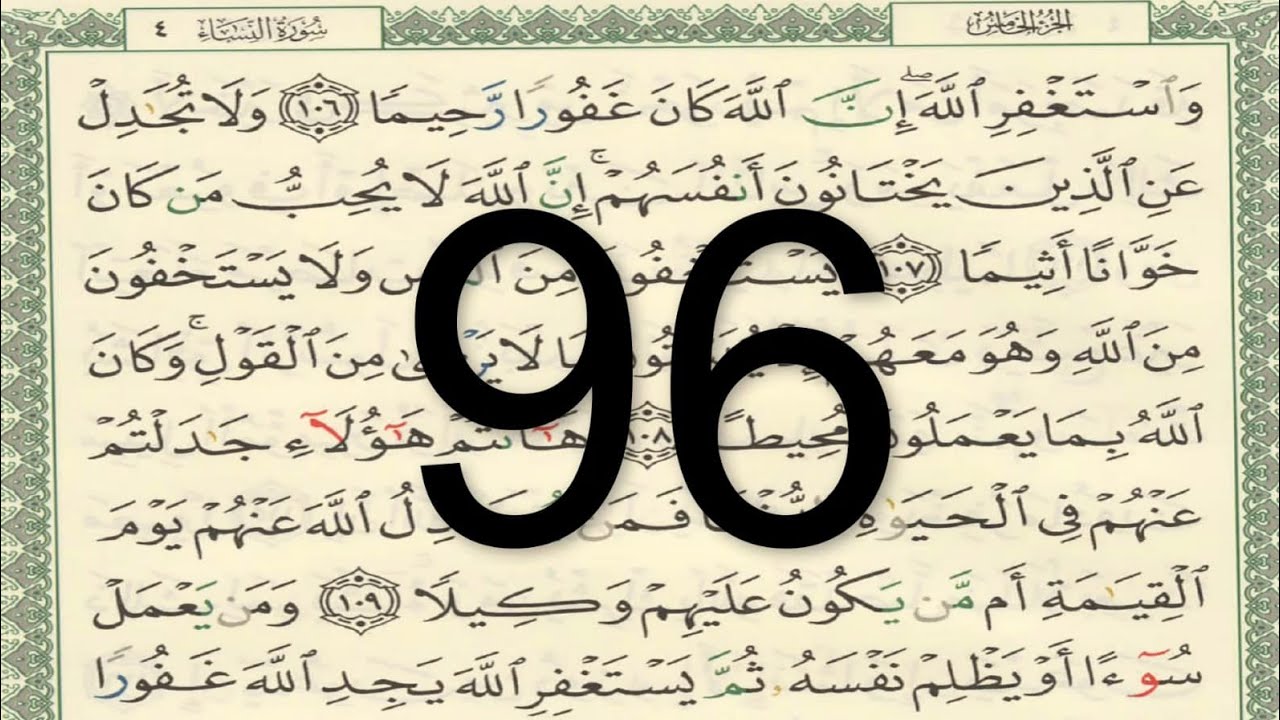 الجزء الخامس
سورة النساء ٤
وَٱسْتَغْفِرِ ٱللَّهَ ۖ إِنَّ ٱللَّهَ كَانَ غَفُورًا رَّحِيمًا ١٠٦ وَلَا تُجَٰدِلْ
عَنِ ٱلَّذِينَ يَخْتَانُونَ أَنفُسَهُمْ ۚ إِنَّ ٱللَّهَ لَا يُحِبُّ مَن كَانَ
خَوَّانًا أَثِيمًا ١٠٧ يَسْتَخْفُونَ مِنَ ٱلنَّاسِ وَلَا يَسْتَخْفُونَ
مِنَ ٱللَّهِ وَهُوَ مَعَهُمْ إِذْ يُبَيِّتُونَ مَا لَا يَرْضَىٰ مِنَ ٱلْقَوْلِ ۚ وَكَانَ
ٱللَّهُ بِمَا يَعْمَلُونَ مُحِيطًا ١٠٨ هَٰٓأَنتُمْ هَٰٓؤُلَآءِ جَٰدَلْتُمْ
عَنْهُمْ فِى ٱلْحَيَوٰةِ ٱلدُّنْيَا فَمَن يُجَٰدِلُ ٱللَّهَ عَنْهُمْ يَوْمَ
ٱلْقِيَٰمَةِ أَم مَّن يَكُونُ عَلَيْهِمْ وَكِيلًا ١٠٩ وَمَن يَعْمَلْ
سُوٓءًا أَوْ يَظْلِمْ نَفْسَهُۥ ثُمَّ يَسْتَغْفِرِ ٱللَّهَ يَجِدِ ٱللَّهَ غَفُورًا
96